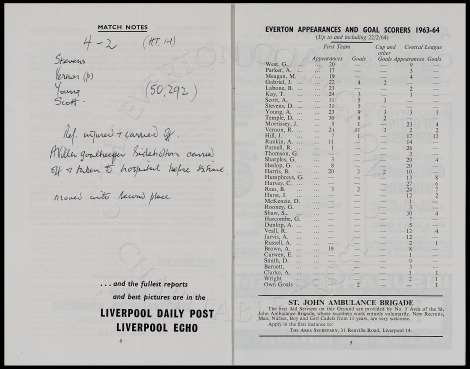 MATCH NOTES
4-2 (HT. 1-1)
Stevens
Vernon (p)
Young (50,292)
Scott
Ref. injured + carried off
goalkeeper carried
off + taken to hospital before
moved into second place
...and the fullest reports
and best pictures are in the
LIVERPOOL DAILY POST
LIVERPOOL ECHO
EVERTON APPEARANCES AND GOAL SCORERS 1963-64
(Up to and including 22/2/64)
First Team Cup and other Goals Central League
Appearances Goals Appearances Goals
West, G. ... 20 9
Parker, A. ... 17 3
Meagan, M. ... 19 4
Gabriel, J. ... 22 4 2
Labone, B. ... 23 2
Kay, T. ... 24 3 1
Scott, A. ... 31 5 3
Stevens, D. ... 31 5
Young, A. ... 23 9 3 3 3
Temple, D. ... 30 9 2
Morrissey, J. ... 5 1 23 4
Vernon, R. ... 24 11 3 2 2
Hill, J. ... 7 1 17 12
Rankin, A. ... 11 14
Parnell, R. ... 1 26
Thomson, G. ... 5
Sharples, G. ... 3 29 4
Heslop, G. ... 8 20
Harris, B. ... 20 3 2 10
Humphreys, G. ... 13 8
Harvey, C. ... 27 6
Rees, B. ... 3 2 24 7
Hurst, J. ... 12 2
McKenzie, D. ... 1
Rooney, G. ... 3
Shaw, S. ... 30 4
Harcombe, G. ... 7
Dunlop, A. ... 5
Veall, R. ... 12 4
Jarvis, A. ... 12
Russell, A. ... 2 1
Brown, A. ... 19 8
Curwen, E. ... 1
Smith, D. ... 9
Barnett, ... 3
Clarke, A. ... 1 1
Wright ... 2 1
Own Goals ... 2 1
ST. JOHN AMBULANCE BRIGADE
The first Aid Services on this Ground are provided by No. 5 Area of the St.
John Ambulance Brigade, whose members work entirely voluntarily. New Recruits,
Men, Nurses, Boy and Girl Cadets from 11 years, are very welcome.
Apply in the first instance to:
THE AREA SECRETARY, 31 Renville Road, Liverpool 14.